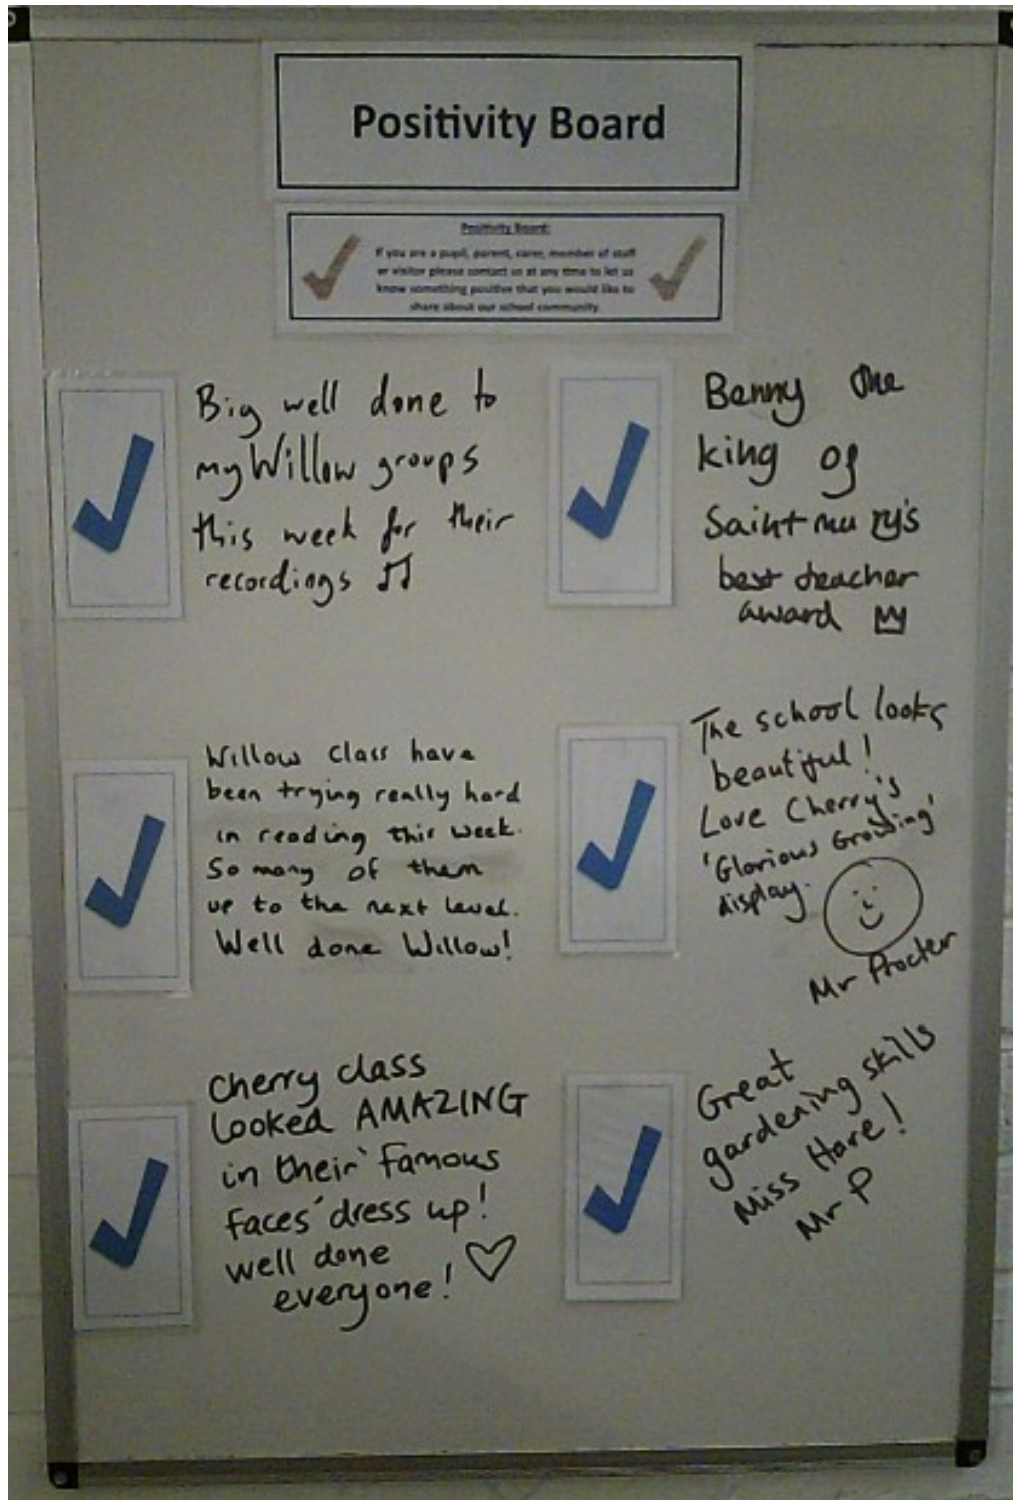 Positivity Board
Positivity Board:
If you are a pupil, parent, carer, member of staff
or visitor please contact us at any time to let us
know something positive that you would like to
share about our school community.
Big well done to
my Willow groups
this week for their
recordings
Benny the
king of
Saint mary's
best teacher
award
Willow Class have
been trying really hard
in reading this week.
So many of them
up to the next level.
Well done Willow!
The school looks
beautiful!
Love Cherry's
'Glorious Growing'
display.
Mr Procter
Cherry class
looked AMAZING
in their 'famous
faces' dress up!
well done
everyone!
Great
gardening skills
Miss Hare!
Mr P